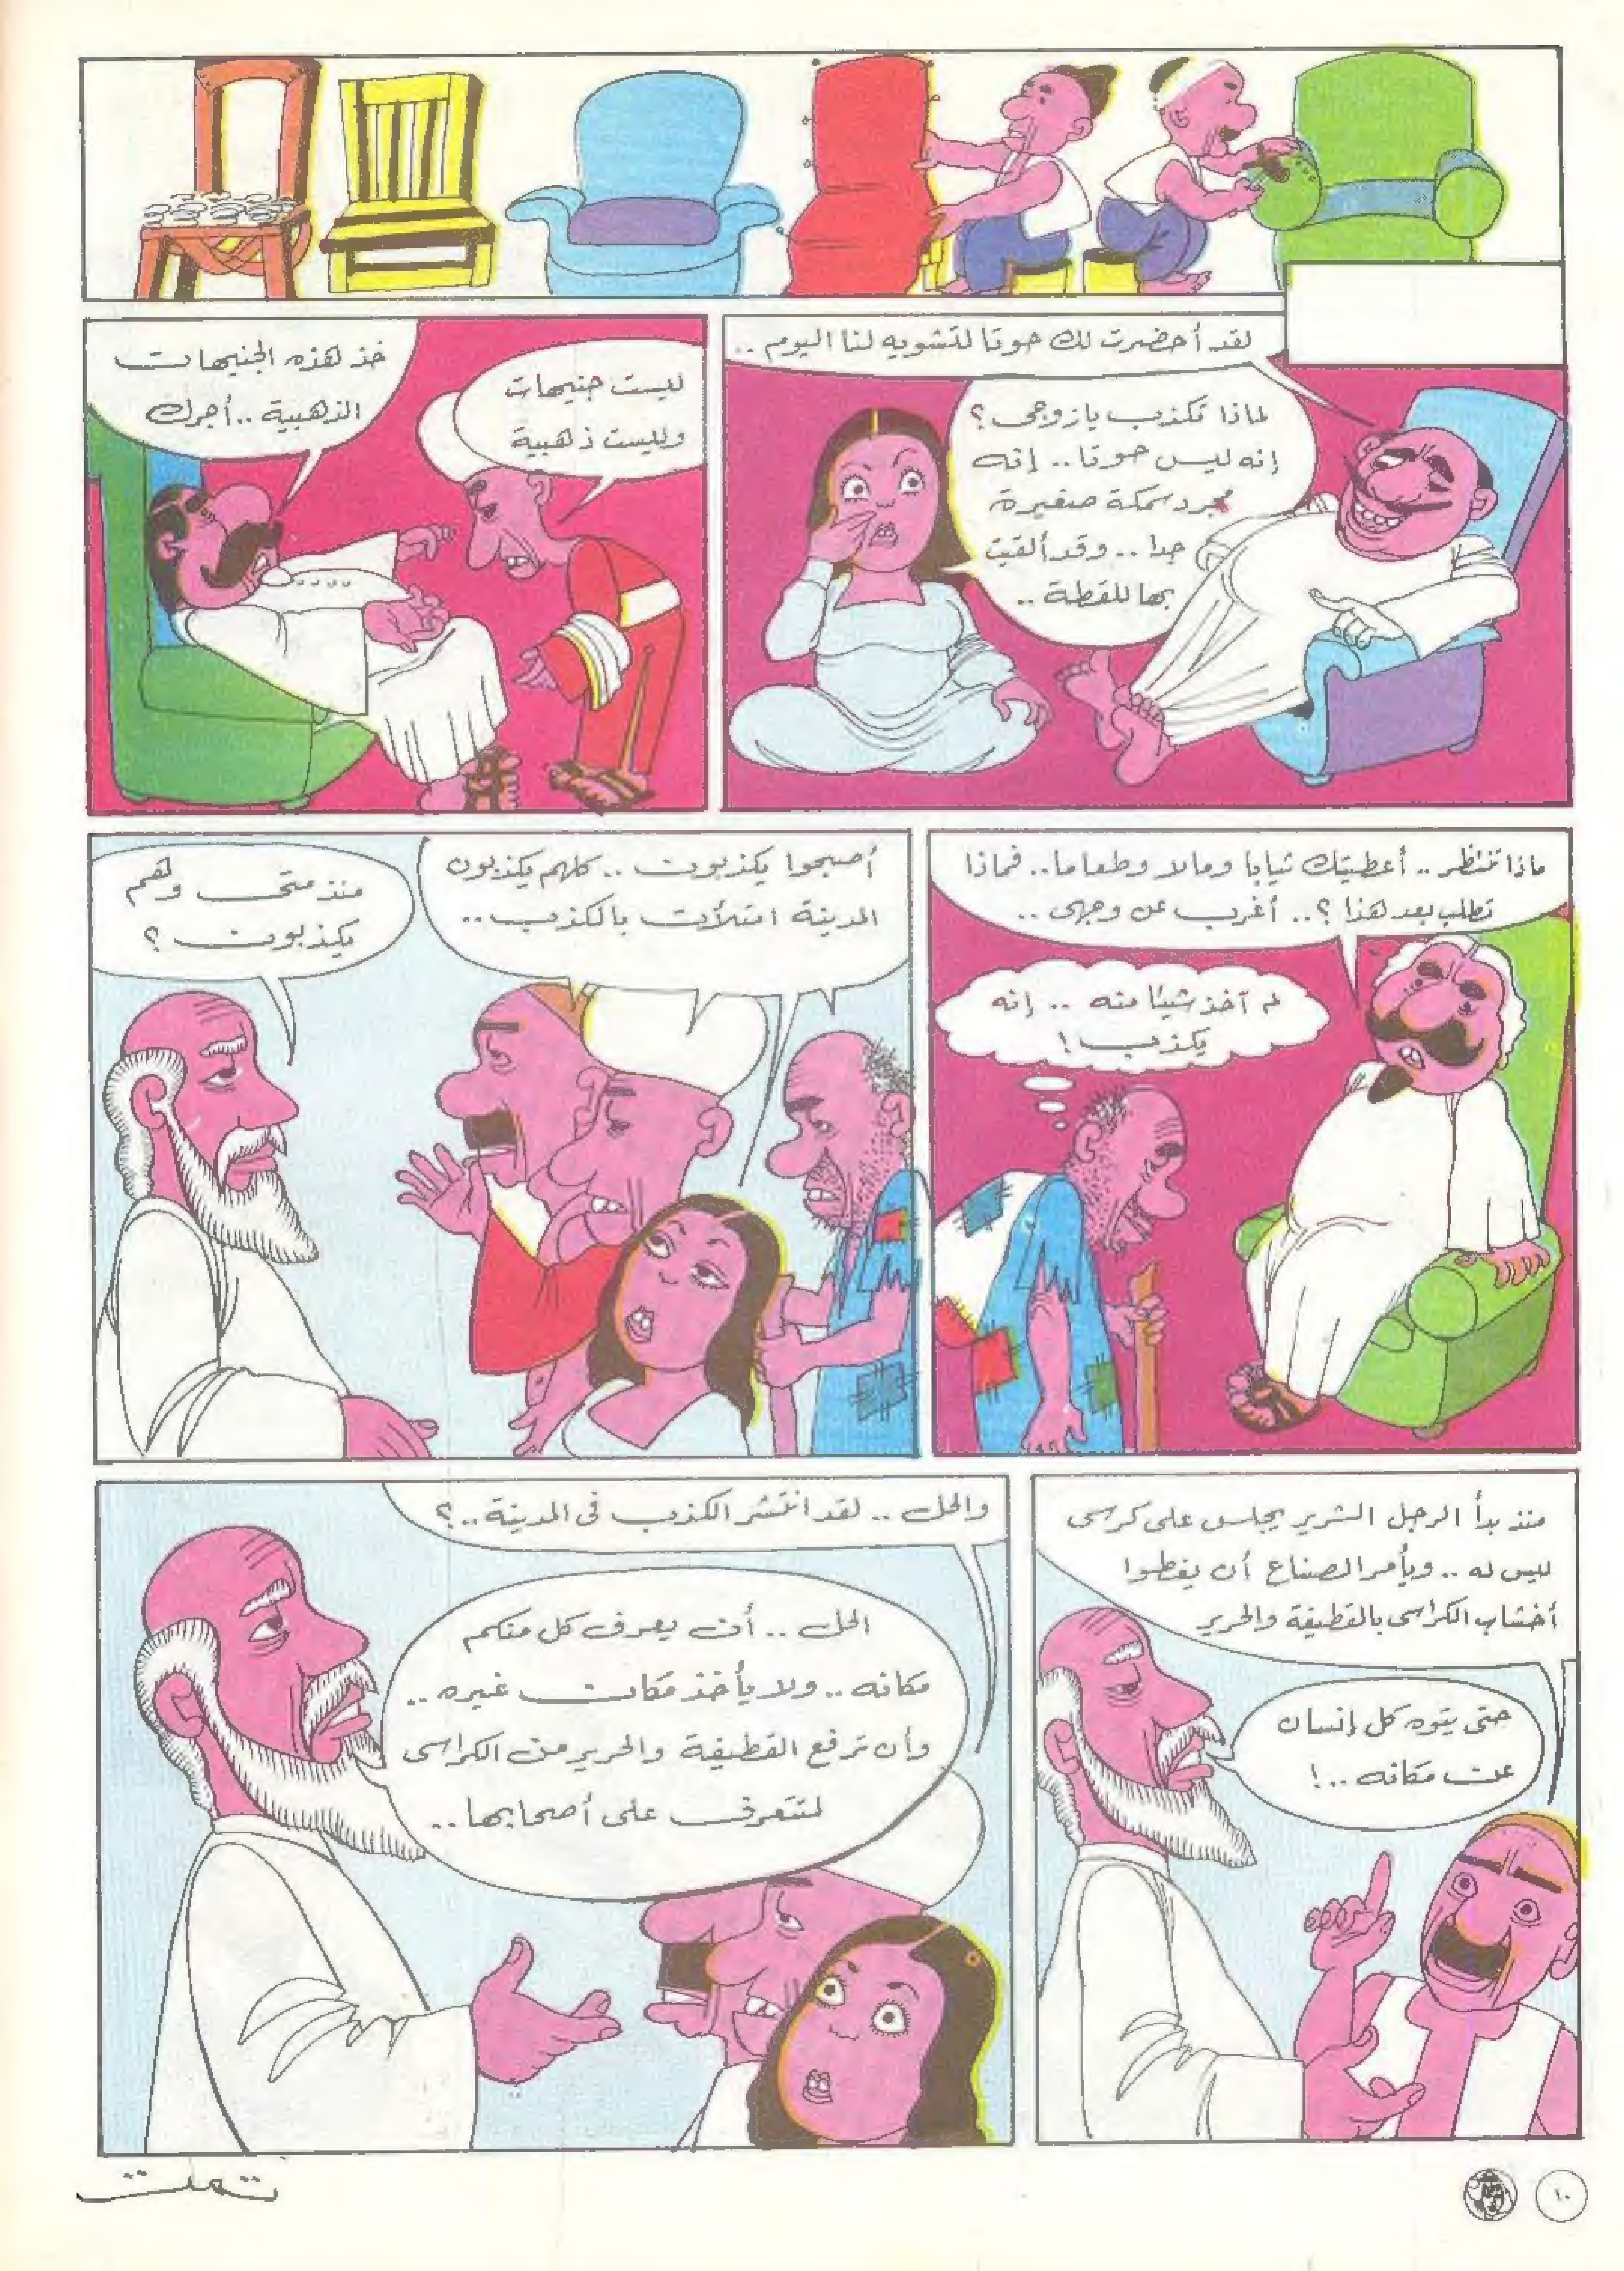 لقد أحضرت لك حوتا لتشويه لنا اليوم ..
لماذا تكذب يا زوجى ؟
إنه ليس حوتا .. إنه
مجرد سمكة صغيرة
جدا .. وقد ألقيت
بها للقطة ..
خذ هذه الجنيهات
الذهبية .. أجرك
ليست جنيهات
وليست ذهبية
ماذا تنتظر .. أعطيتك ثيابا ومالا وطعاما .. فماذا
تطلب بعد هذا ؟ .. أغرب عن وجهى ..
لم آخذ شيئا منه .. إنه
يكذب !
أصبحوا يكذبون .. كلهم يكذبون
المدينة امتلأت بالكذب ..
منذ متى وهم
يكذبون ؟
منذ بدأ الرجل الشرير يجلس على كرسى
ليس له .. ويأمر الصناع أن يغطوا
أخشاب الكراسى بالقطيفة والحرير
حتى يتوه كل إنسان
عن مكانه .. !
والحل .. لقد انتشر الكذب فى المدينة .. ؟
الحل .. أن يعرف كل منكم
مكانه .. ولا يأخذ مكان غيره ..
وأن ترفع القطيفة والحرير من الكراسى
لنتعرف على أصحابها ..
تمت
١٠